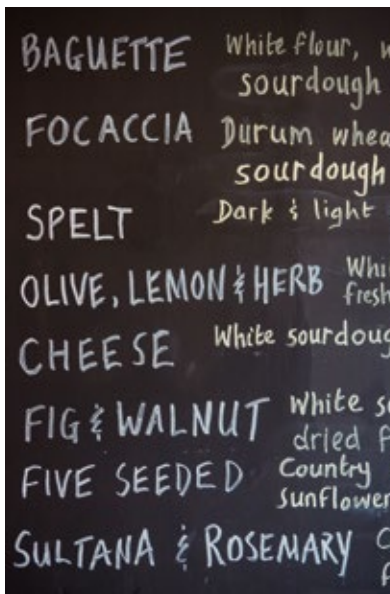 BAGUETTE White flour,
sourdough
FOCACCIA Durum
sourdough
SPELT Dark & light
OLIVE, LEMON & HERB
CHEESE White
FIG & WALNUT White
dried
FIVE SEEDED Country
SULTANA & ROSEMARY